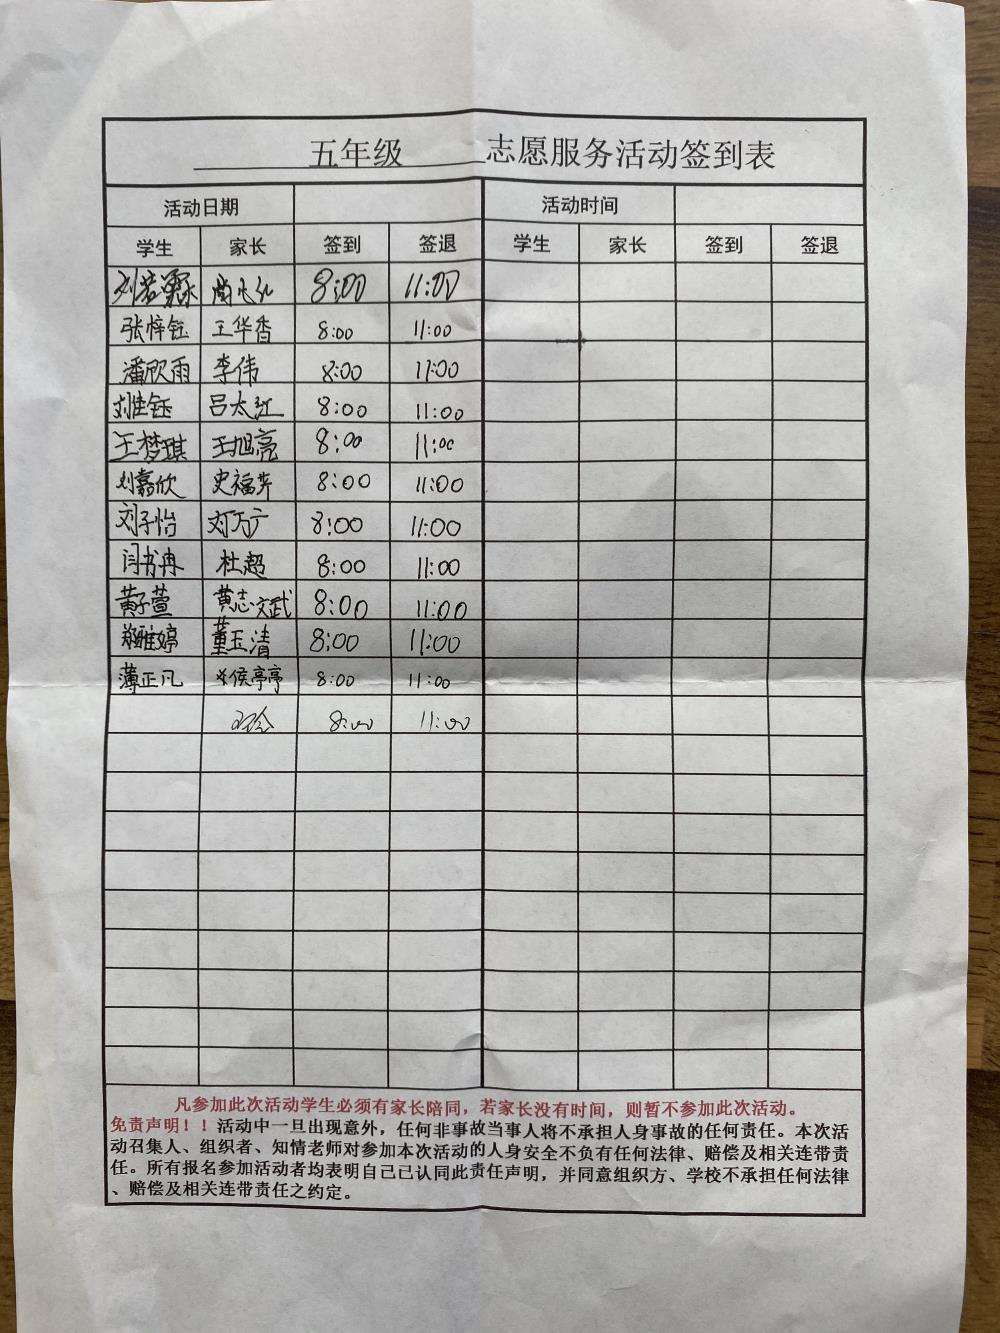 五年级 志愿服务活动签到表
活动日期 活动时间
学生 家长 签到 签退 学生 家长 签到 签退
8:00 11:00
张梓钰 王华香 8:00 11:00
潘欣雨 李伟 8:00 11:00
刘佳钰 吕太江 8:00 11:00
王梦琪 王旭亮 8:00 11:00
刘嘉欣 8:00 11:00
刘子怡 刘万广 8:00 11:00
闫书冉 杜超 8:00 11:00
黄子萱 黄志斌 8:00 11:00
郑雅婷 董玉清 8:00 11:00
薄正凡 侯亭亭 8:00 11:00
8:00 11:00
凡参加此次活动学生必须有家长陪同，若家长没有时间，则暂不参加此次活动。
免责声明！！活动中一旦出现意外，任何非事故当事人将不承担人身事故的任何责任。本次活
动召集人、组织者、知情老师对参加本次活动的人身安全不负有任何法律、赔偿及相关连带责
任。所有报名参加活动者均表明自己已认同此责任声明，并同意组织方、学校不承担任何法律
、赔偿及相关连带责任之约定。